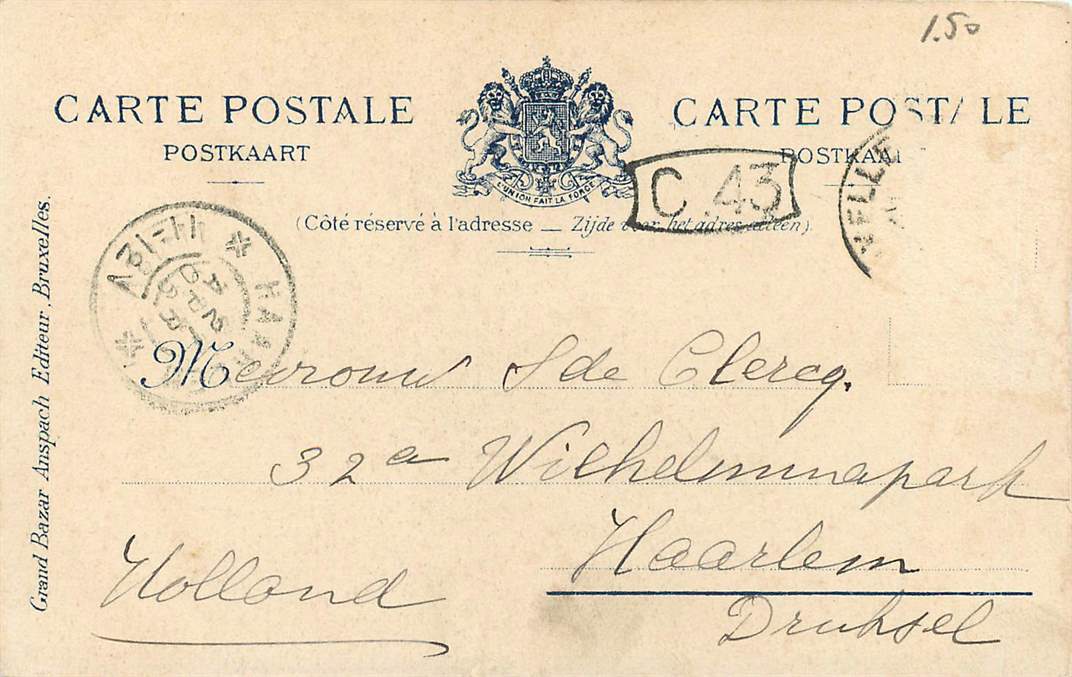 1.50
CARTE POSTALE
POSTKAART
L'UNION FAIT LA FORCE
CARTE POSTALE
POSTKAA
(Côté réservé à l'adresse — Zijde voor het adres alleen)
C 43
Grand Bazar Anspach Editeur, Bruxelles.
Mevrouw S de Clercq.
32a Wilhelminapark
Haarlem
Holland
Druksel